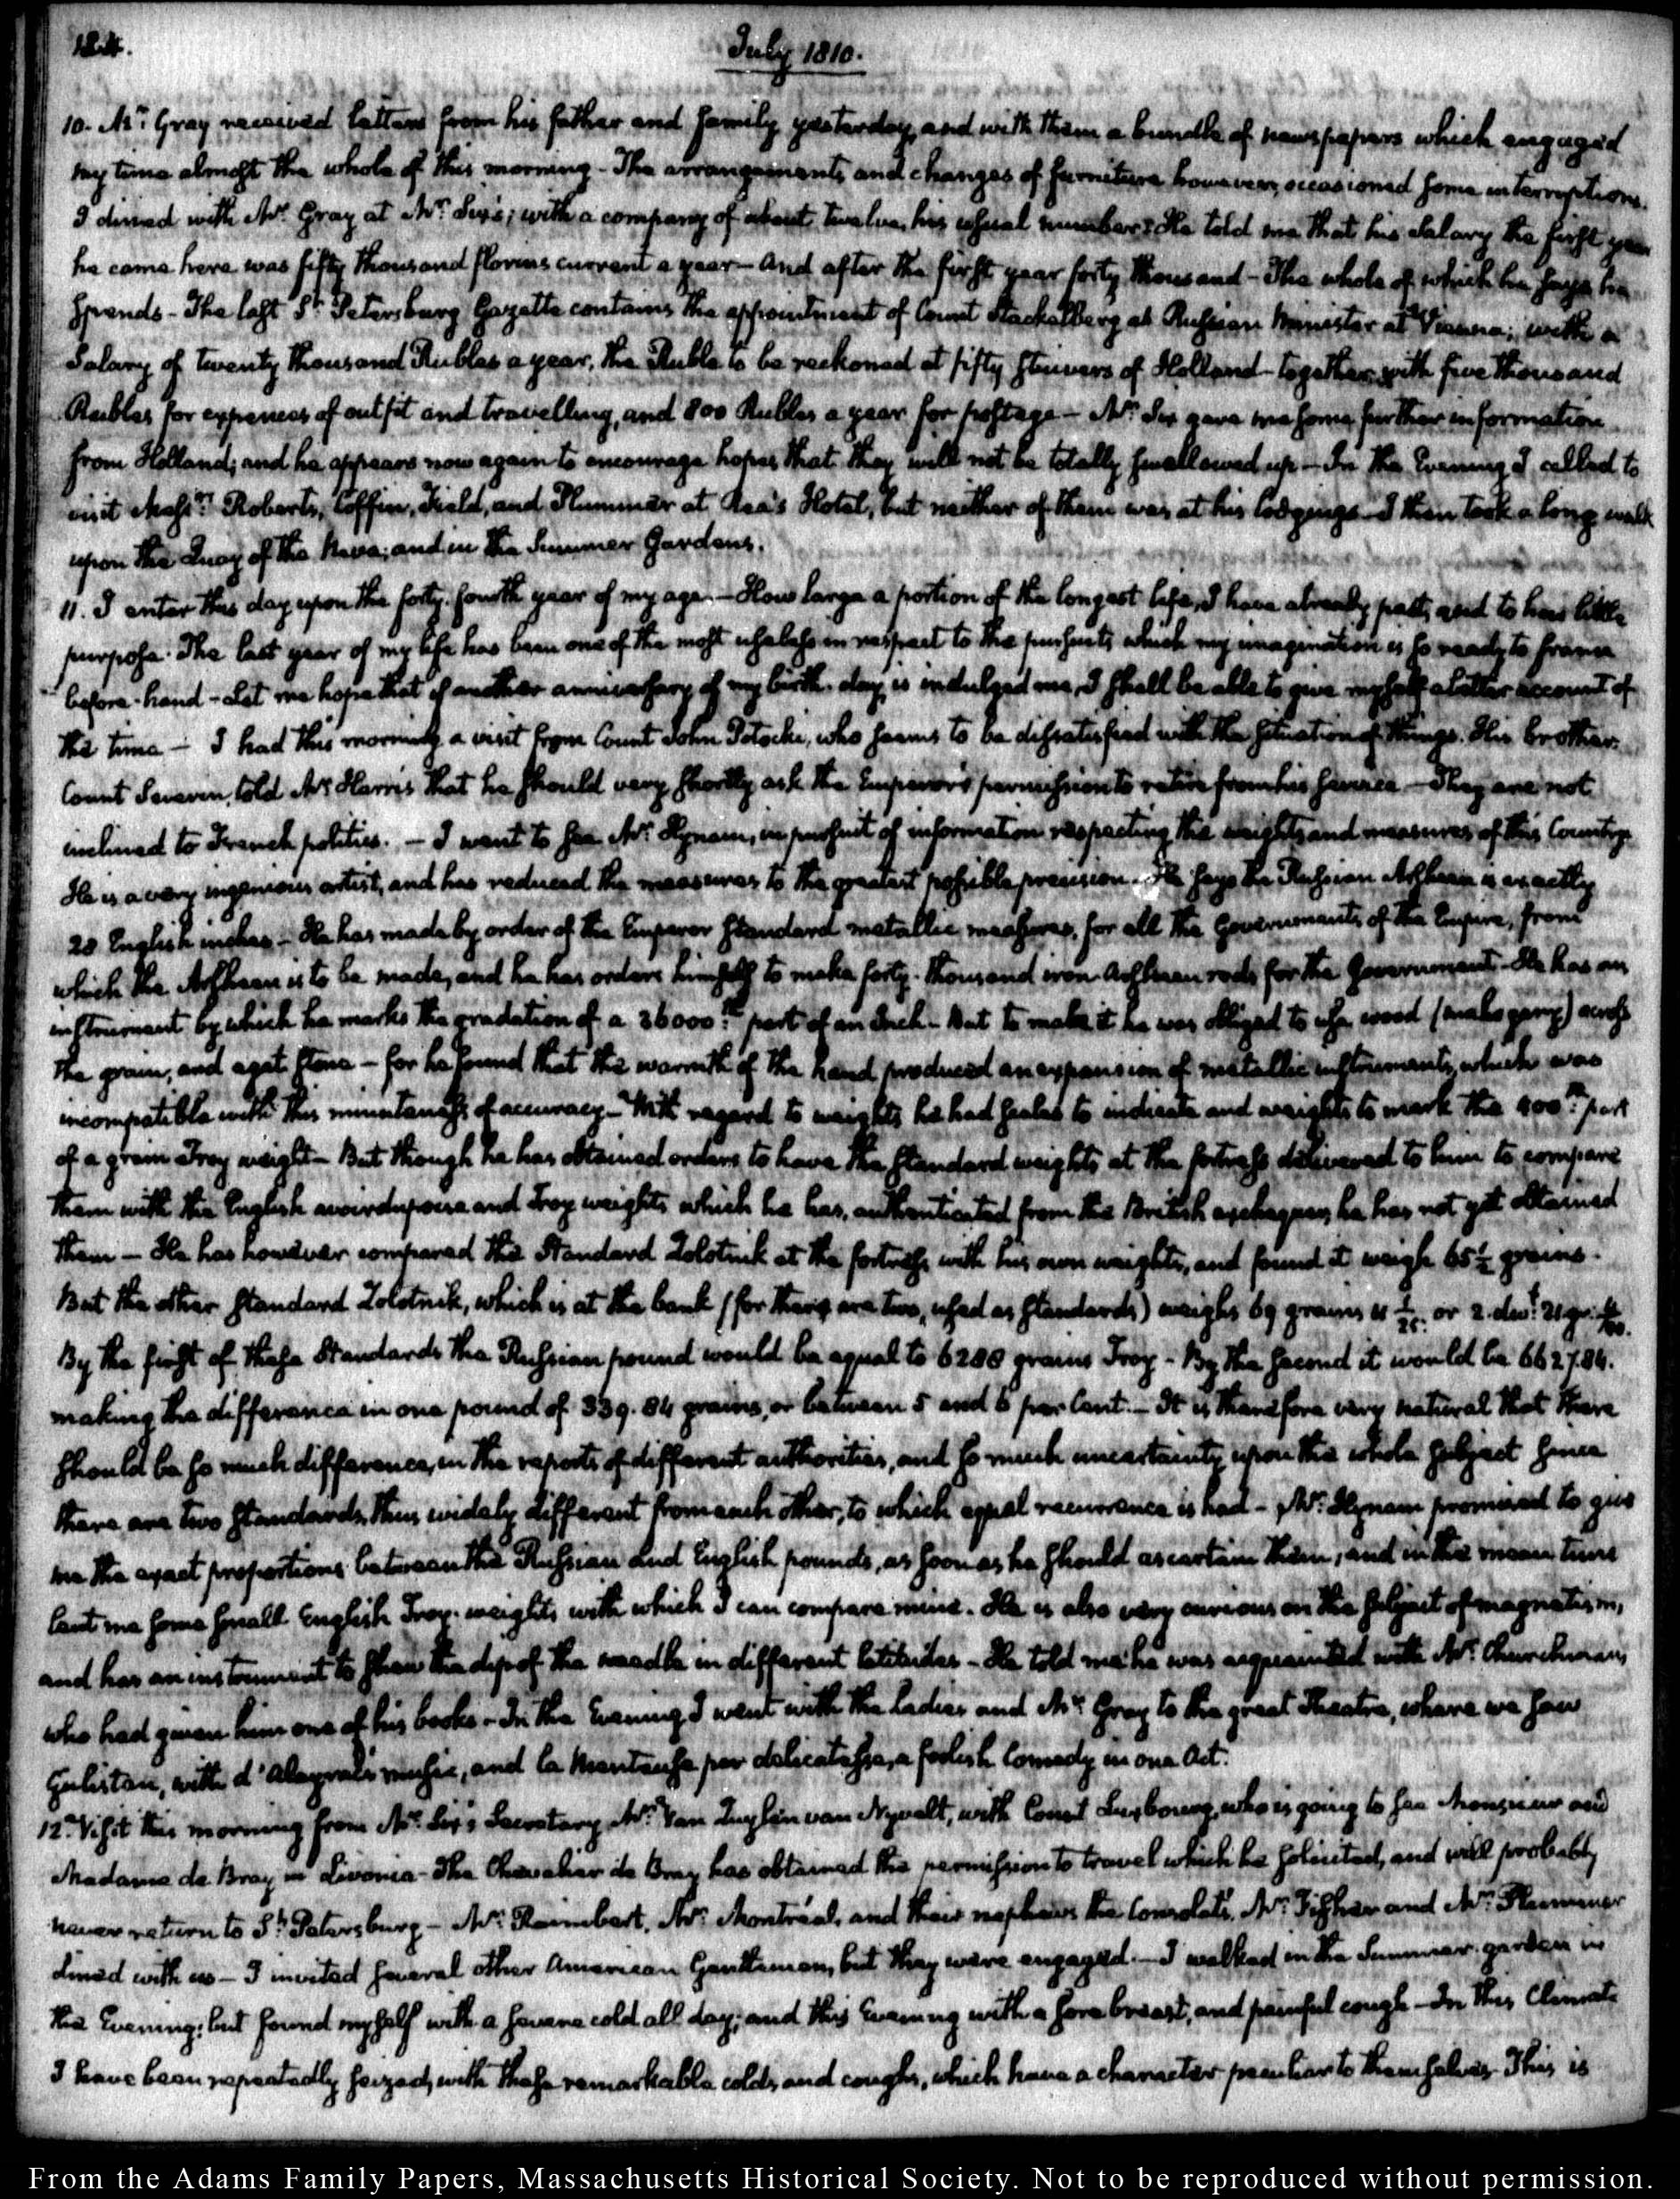 124.
July 1810.
10. Mr. Gray received letters from his father and family yesterday, and with them a bundle of newspapers which engaged
my time almost the whole of this morning - The arrangements and changes of furniture however, occasioned some interruptions.
I dined with Mr. Gray at Mr. Six's; with a company of about twelve, his usual number. He told me that his Salary the first year
he came here was fifty thousand florins current a year - And after the first year forty thousand - The whole of which he says he
spends - The last St. Petersburg Gazette contains the appointment of Count Stackelberg as Russian Minister at Vienna; with a
Salary of twenty thousand Rubles a year, the Ruble to be reckoned at fifty stuivers of Holland - together with five thousand
Rubles for expences of outfit and travelling, and 800 Rubles a year for postage - Mr. Six gave me some further information
from Holland; and he appears now again to encourage hopes that they will not be totally swallowed up - In the Evening I called to
visit Messrs. Roberts, Coffin, Field, and Plummer at Rea's Hotel, but neither of them was at his lodgings - I then took a long walk
upon the Quay of the Neva; and in the Summer Gardens.
11. I enter this day upon the forty-fourth year of my age. - How large a portion of the longest life, I have already past, and to how little
purpose. The last year of my life has been one of the most useless in respect to the pursuits which my imagination is so ready to frame
before-hand - Let me hope that if another anniversary of my birth-day is indulged me, I shall be able to give myself a better account of
the time - I had this morning a visit from Count John Potocki, who seems to be dissatisfied with the situation of things. His brother
Count Severin, told Mr. Harris that he should very shortly ask the Emperor's permission to retire from his service - They are not
inclined to French politics. - I went to see Mr. Hynam, in pursuit of information respecting the weights and measures of this Country.
He is a very ingenious artist, and has reduced the measures to the greatest possible precision. He says the Russian Arsheen is exactly
28 English inches - He has made by order of the Emperor standard metallic measures, for all the Governments of the Empire, from
which the Arsheen is to be made, and he has orders himself to make forty-thousand iron Arsheen rods for the Government - He has an
instrument by which he marks the gradation of a 36000th. part of an Inch - But to make it he was obliged to use wood (mahogany) across
the grain, and agat stone - for he found that the warmth of the hand produced an expansion of metallic instruments, which was
incompatible with this minuteness of accuracy - With regard to weights he had scales to indicate and weights to mark the 400th. part
of a grain Troy weight - But though he has obtained orders to have the standard weights at the fortress delivered to him to compare
them with the English avoirdupoise and Troy weights which he has, authenticated from the British exchequer, he has not yet obtained
them - He has however compared the Standard Zolotnik at the fortress with his own weights, and found it weigh 65 1/2 grains -
But the other standard Zolotnik, which is at the bank (for there are two, used as standards) weighs 69 grains & 1/25. or 2 dwt. 21 gr.
By the first of these Standards the Russian pound would be equal to 6288 grains Troy - By the second it would be 6627.84.
making the difference in one pound of 339.84 grains, or between 5 and 6 per Cent. - It is therefore very natural that there
should be so much difference, in the reports of different authorities, and so much uncertainty upon the whole subject since
there are two standards, thus widely different from each other, to which equal recurrence is had - Mr. Hynam promised to give
me the exact proportions between the Russian and English pounds, as soon as he should ascertain them; and in the mean time
lent me some small English Troy-weights with which I can compare mine. He is also very curious on the subject of magnetism,
and has an instrument to shew the dip of the needle in different latitudes - He told me he was acquainted with Mr. Churchman,
who had given him one of his books - In the Evening I went with the Ladies and Mr. Gray to the great Theatre, where we saw
Gulistan, with d'Alayrac's music, and la Menteuse par delicatesse, a foolish Comedy in one Act.
12. Visit this morning from Mr. Six's Secretary Mr. Van Zuylen van Nyvelt, with Count Luxbourg, who is going to see Monsieur and
Madame de Bray in Livonia - The Chevalier de Bray has obtained the permission to travel which he solicited, and will probably
never return to St. Petersburg - Mr. Raimbert, Mr. Montréal, and their nephews the Consolats, Mr. Fisher and Mr. Plummer
dined with us - I invited several other American Gentlemen, but they were engaged. - I walked in the Summer-garden in
the Evening; but found myself with a severe cold all day; and this Evening with a sore breast, and painful cough - In this Climate
I have been repeatedly seized, with these remarkable colds and coughs, which have a character peculiar to themselves - This is
From the Adams Family Papers, Massachusetts Historical Society. Not to be reproduced without permission.